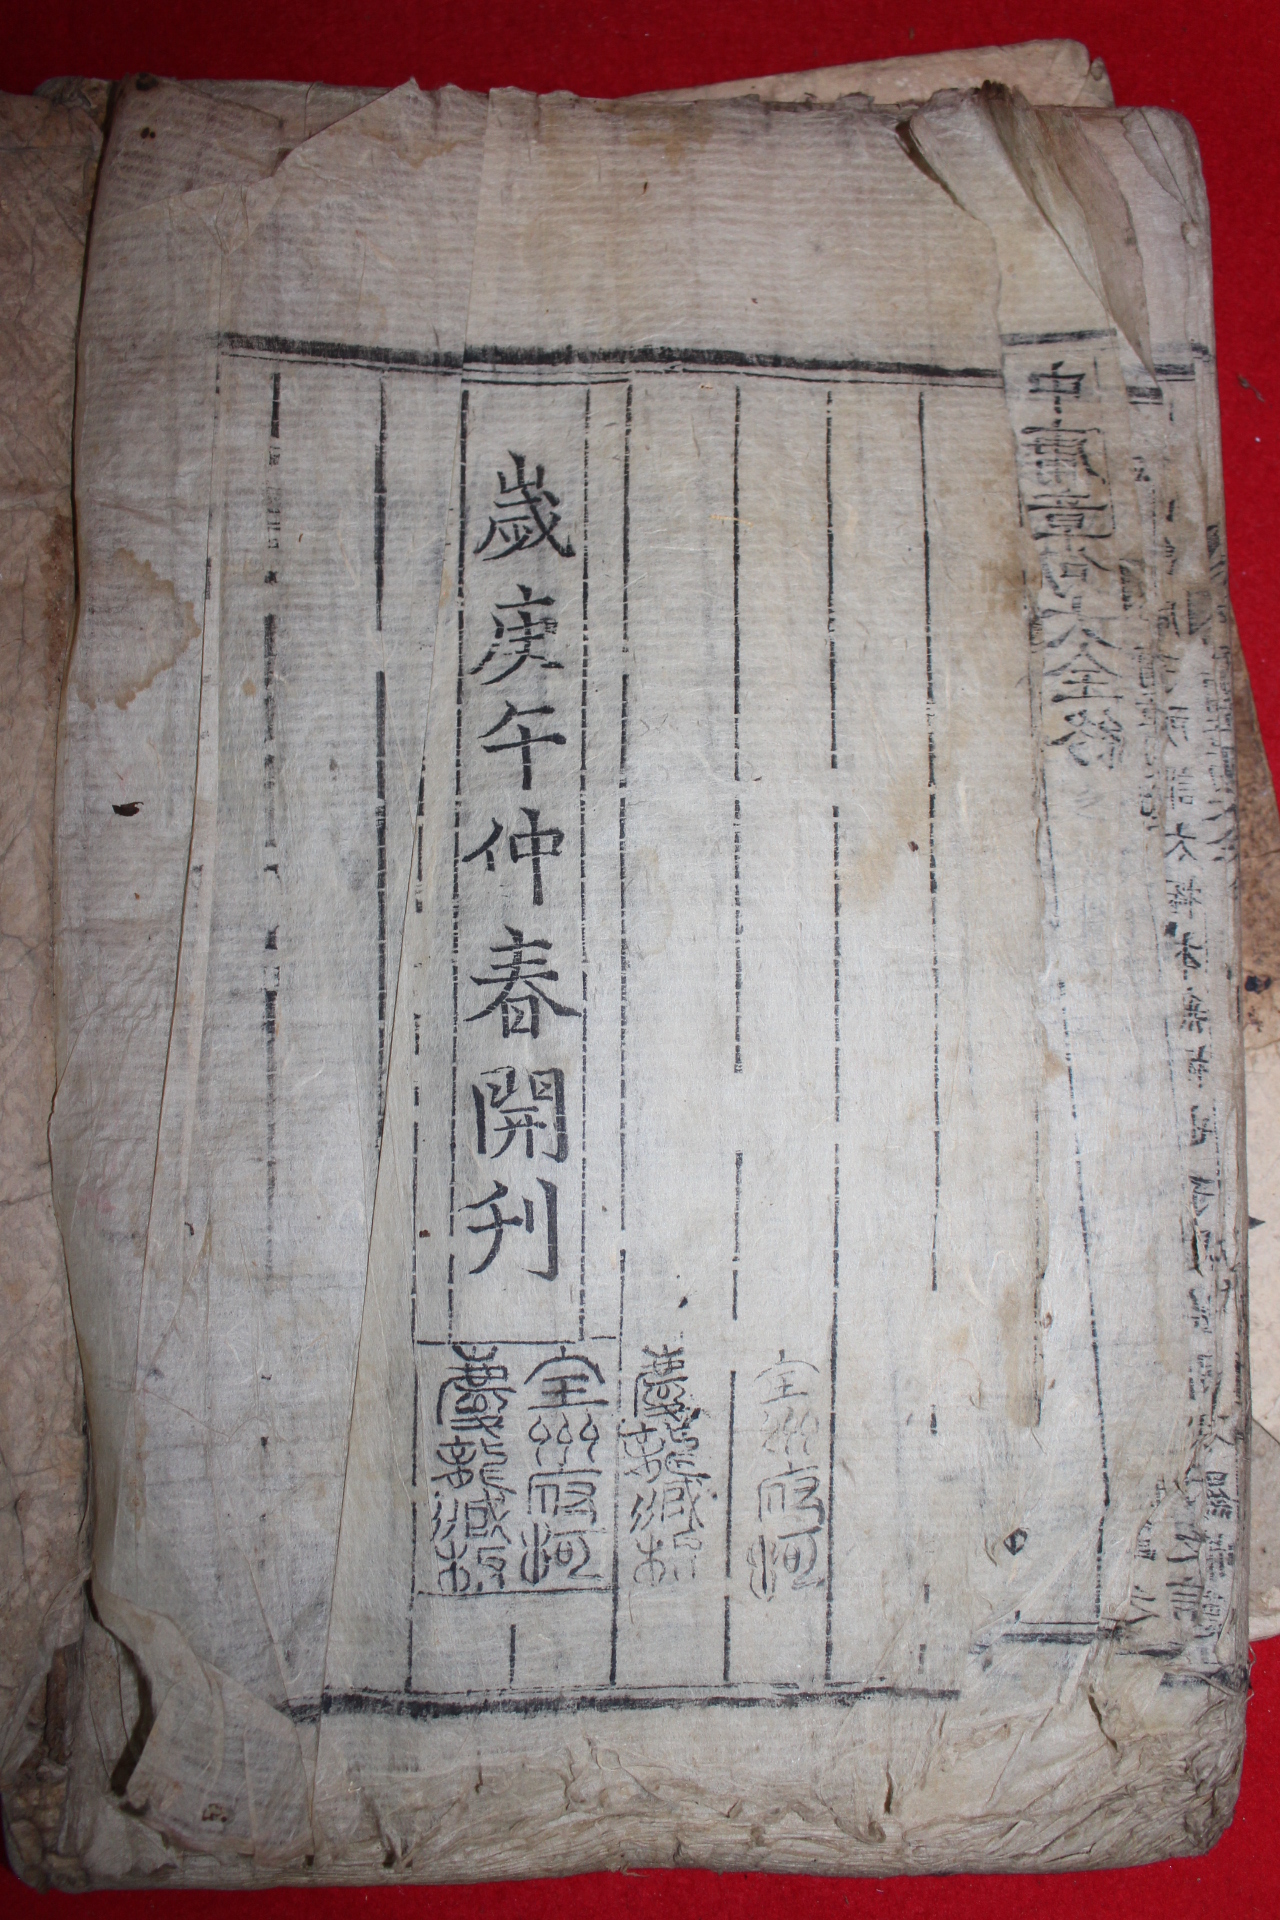 中庸章句大全終
全州府河
慶龍藏板
歲庚午仲春開刊
全州府河
慶龍藏板